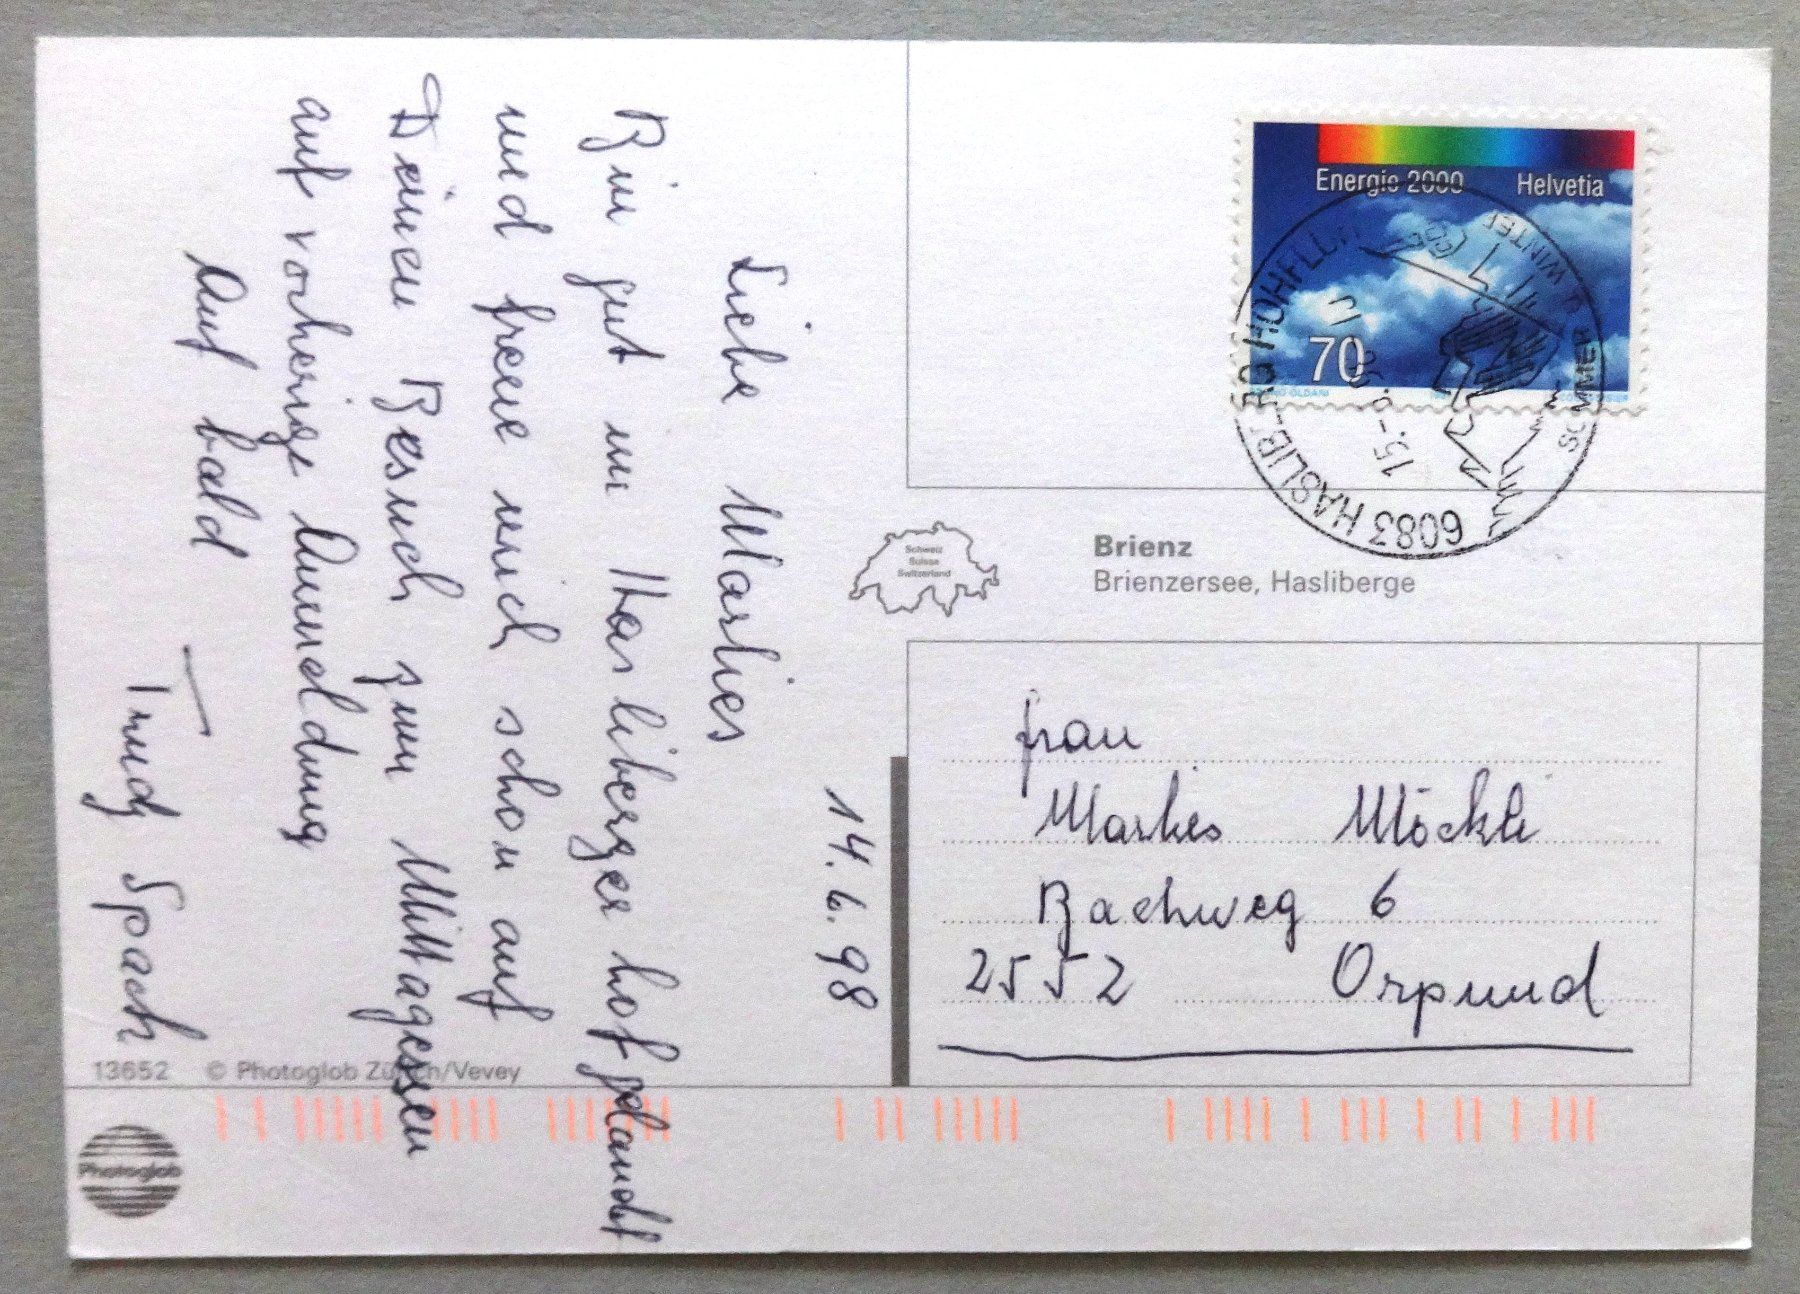 14.6.98
Liebe Marlies
Bin gut im Hasliberger hof gelandet
und freue mich schon auf
Deinen Besuch zum Mittagessen
auf vorherige Anmeldung
Auf bald
Trudy Spach
13652 © Photoglob Zürich/Vevey
Photoglob
Energie 2000 Helvetia
70
6083 HASLIBERG HOHFLUH
SOMMER & WINTER
15.-6.98
Schweiz
Suisse
Switzerland
Brienz
Brienzersee, Hasliberge
Frau
Marlies Möckli
Bachweg 6
2552 Orpund